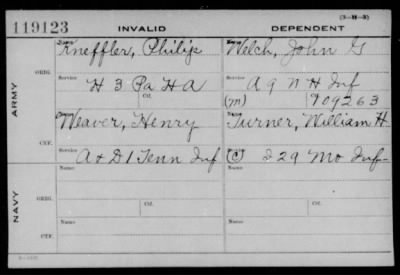 (3-H-3)
119123 INVALID DEPENDENT
Name Name
Kneffler, Philip Welch, John G
ORIG.
Service Service
H 3 Pa H A A 9 N H Inf
Ctf.
(m) 909263
ARMY
Name Name
Weaver, Henry Turner, William H
CTF.
Service Service
A & D 1 Tenn Inf (C) I 29 Mo Inf
Name Name
ORIG.
Ctf. Ctf.
NAVY
Name Name
CTF.